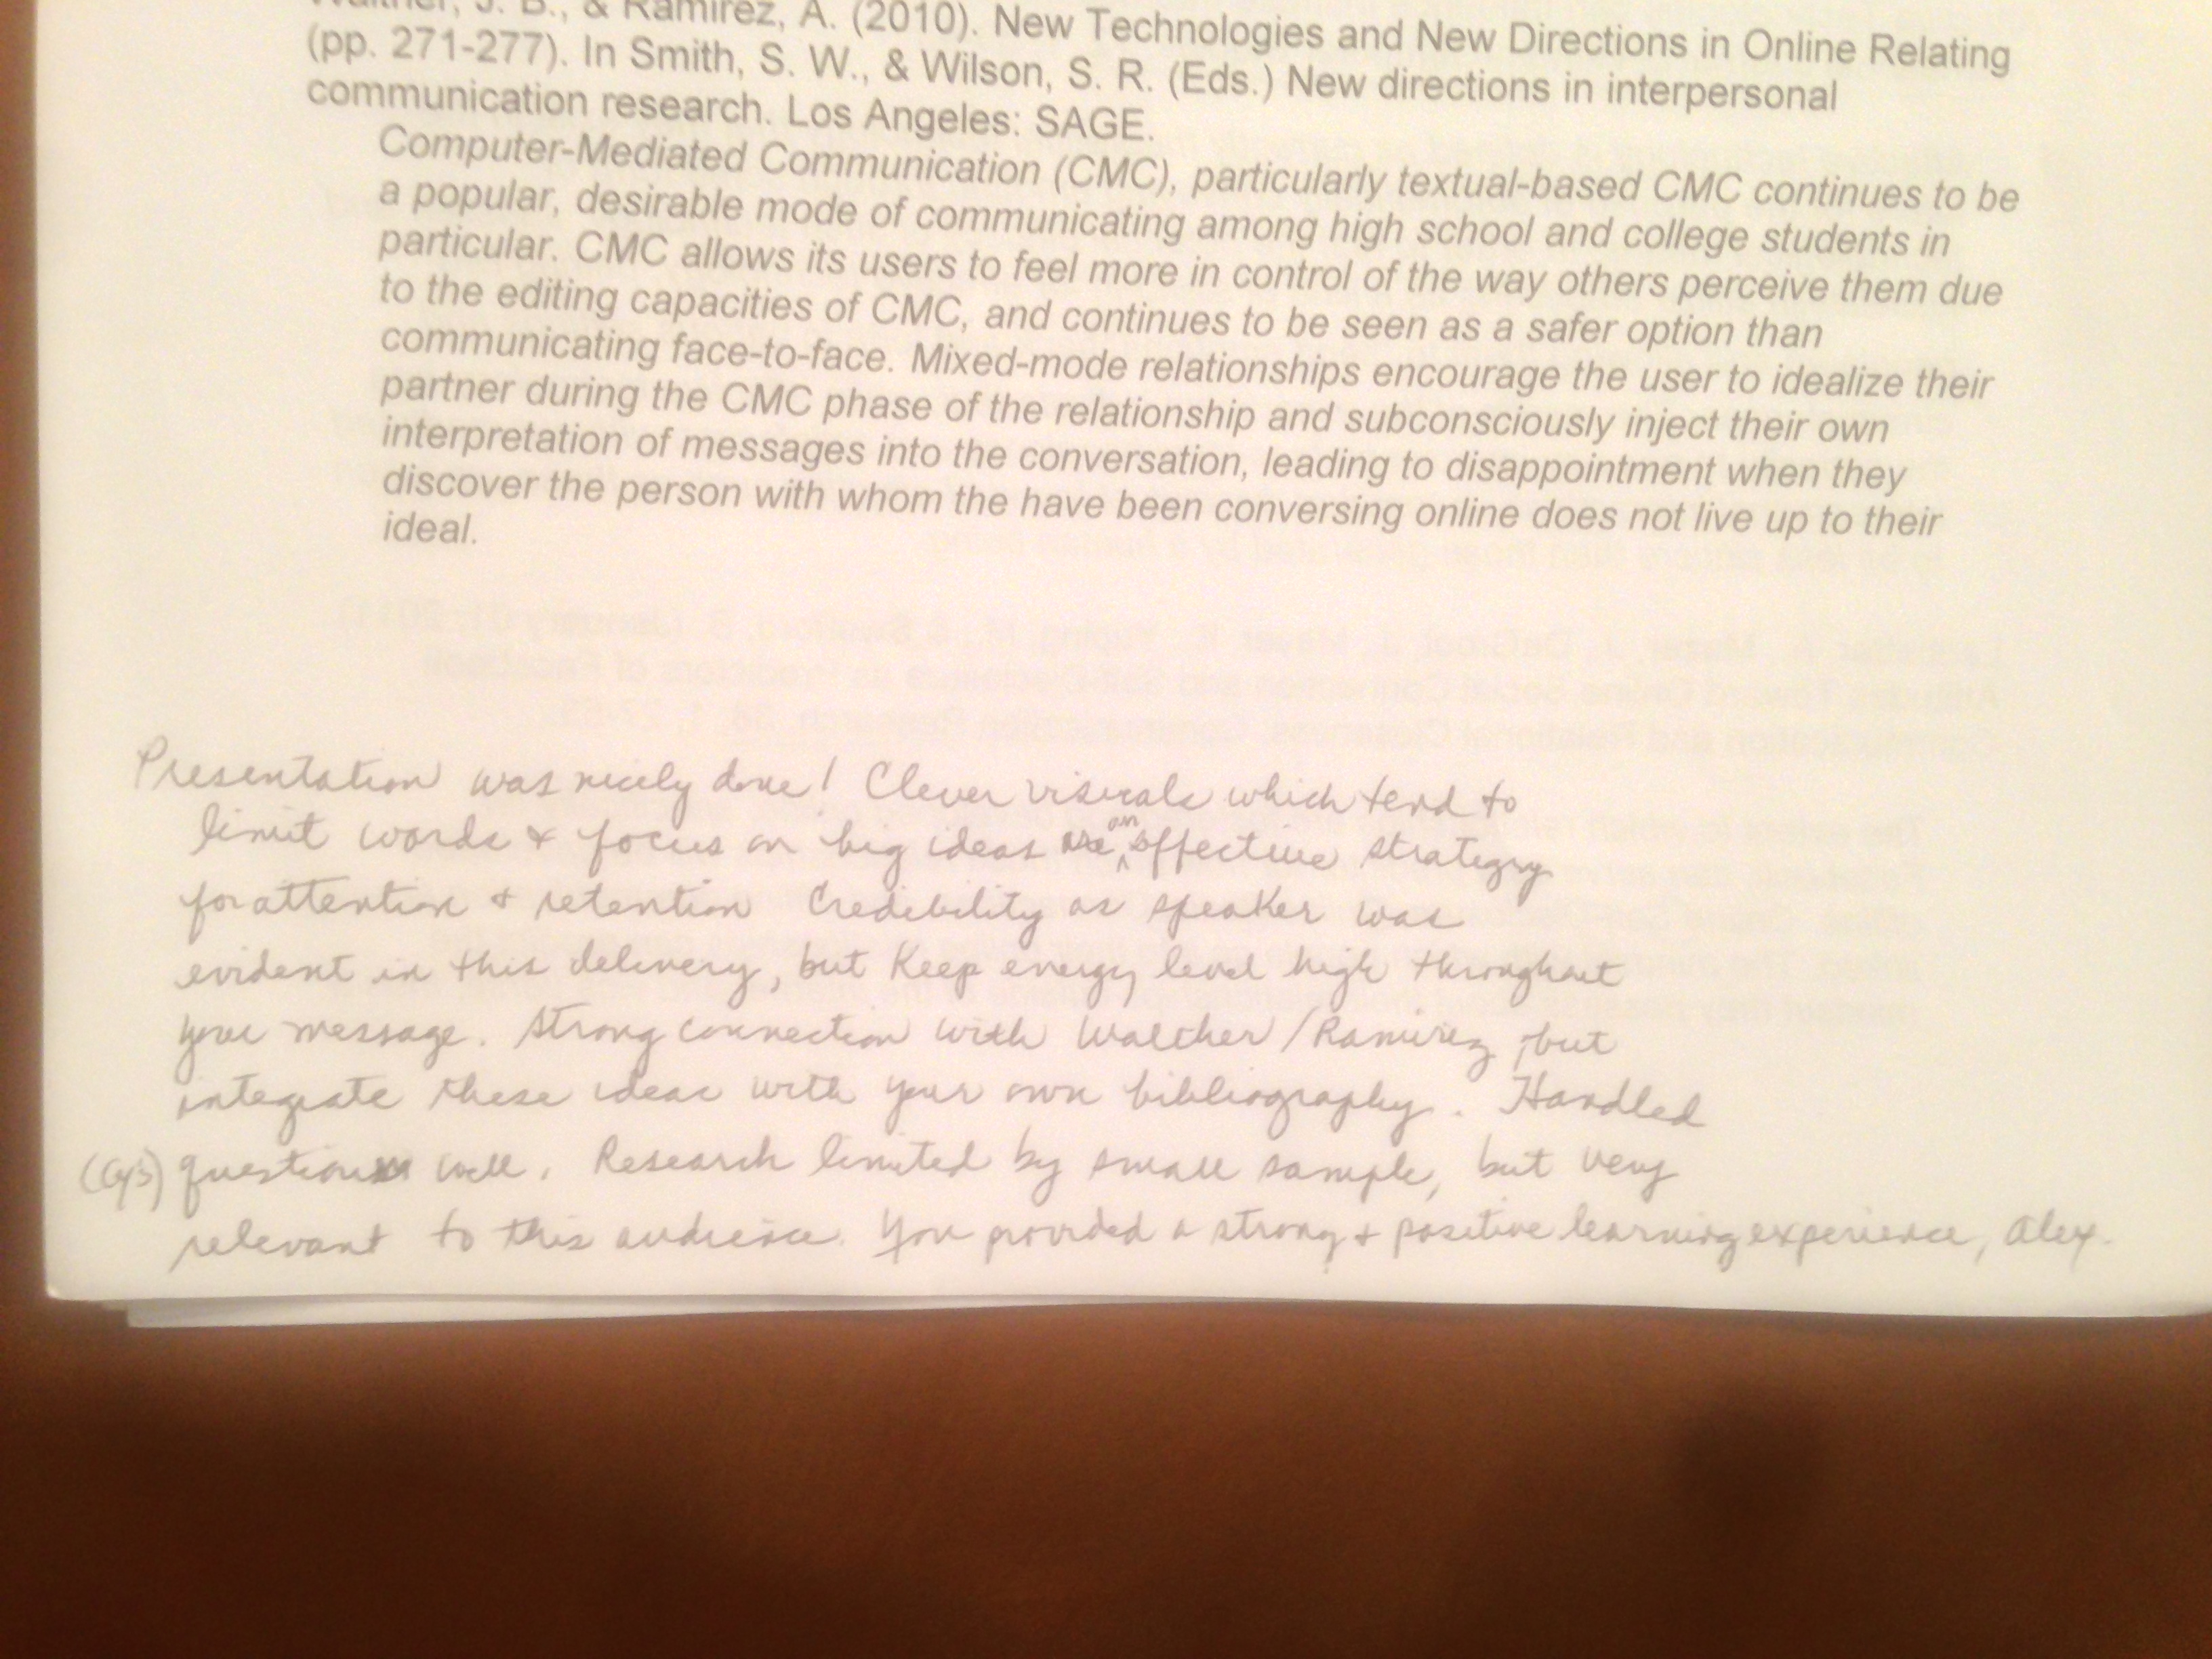 Walther, J. B., & Ramirez, A. (2010). New Technologies and New Directions in Online Relating
(pp. 271-277). In Smith, S. W., & Wilson, S. R. (Eds.) New directions in interpersonal
communication research. Los Angeles: SAGE.
Computer-Mediated Communication (CMC), particularly textual-based CMC continues to be
a popular, desirable mode of communicating among high school and college students in
particular. CMC allows its users to feel more in control of the way others perceive them due
to the editing capacities of CMC, and continues to be seen as a safer option than
communicating face-to-face. Mixed-mode relationships encourage the user to idealize their
partner during the CMC phase of the relationship and subconsciously inject their own
interpretation of messages into the conversation, leading to disappointment when they
discover the person with whom the have been conversing online does not live up to their
ideal.
Presentation was nicely done! Clever visuals which tend to
limit words & focus on big ideas are an effective strategy
for attention & retention Credibility as speaker was
evident in this delivery, but keep energy level high throughout
your message. Strong connection with Walther/Ramirez, but
integrate these ideas with your own bibliography. Handled
questions well. Research limited by small sample, but very
relevant to this audience. You provided a strong & positive learning experience, Alex.